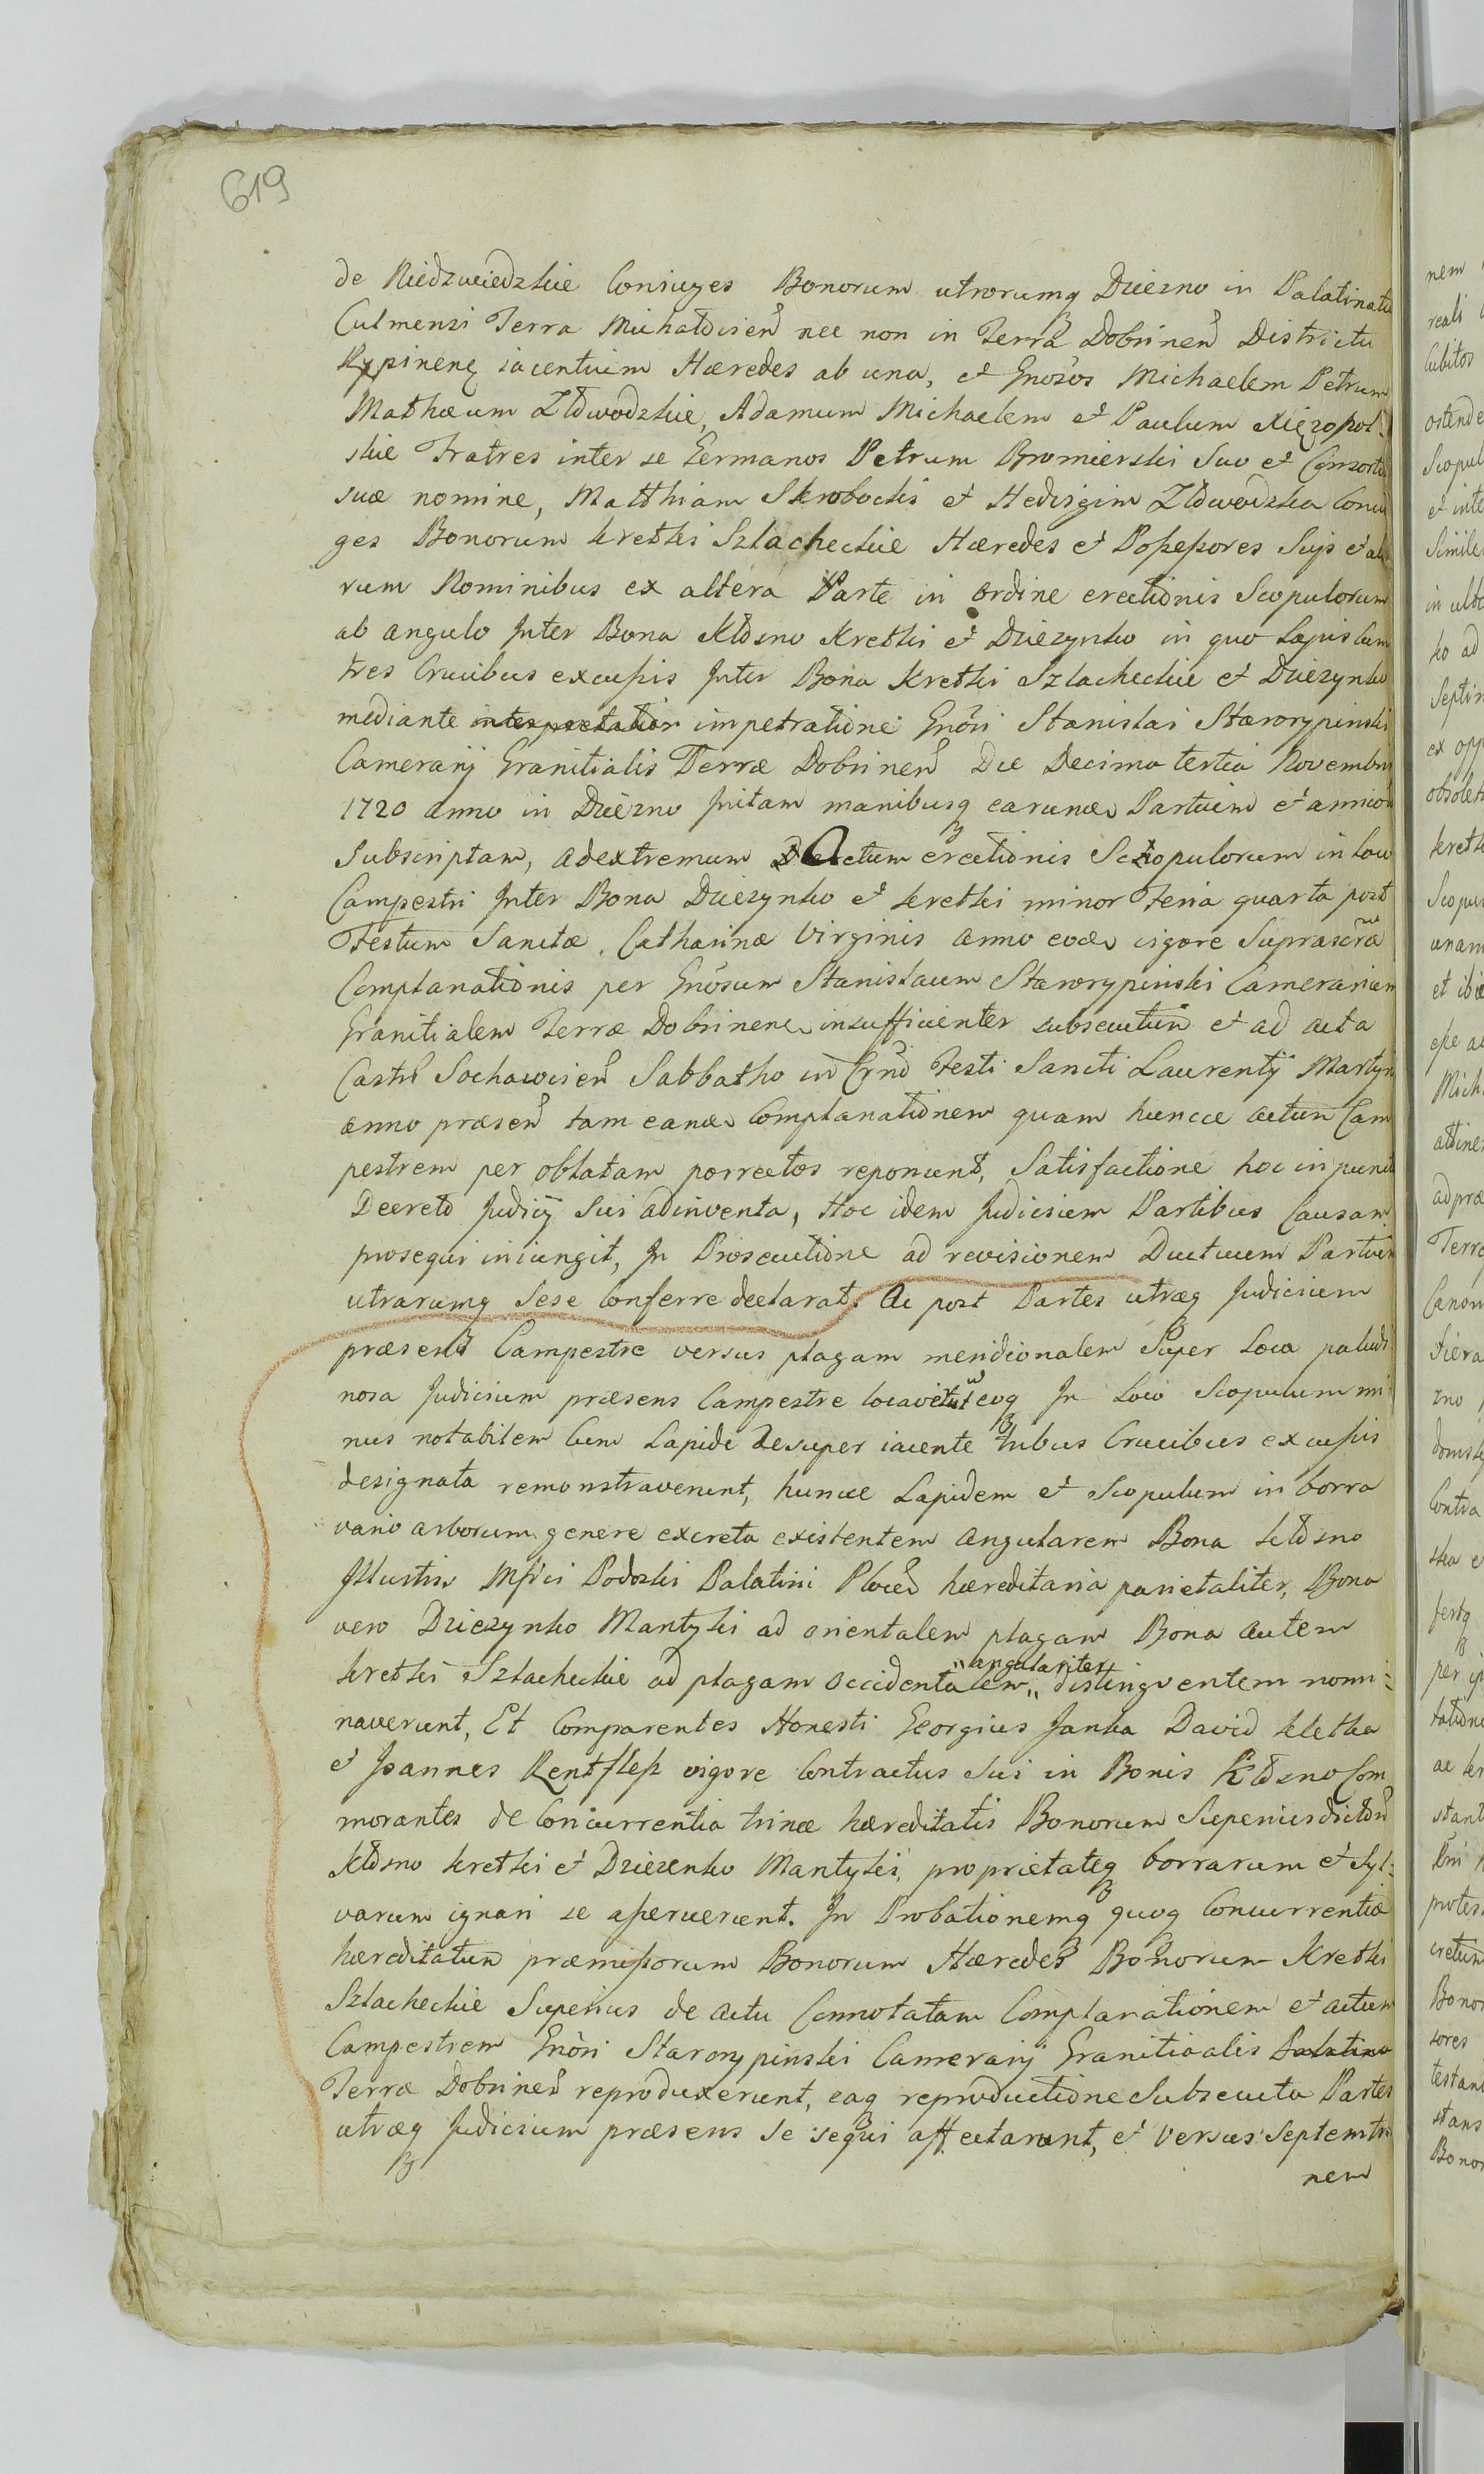 619
de Niedzwiedzkie Coniuges Bonorum utrorumq Dziezno in Palatinatu
Culmensi Terra Michałovien nec non in Terra Dobrinen Districtu
Rypinenq iacentium Hæredes ab una, et Gnosos Michaelem Petrum
Mathæum Złdwodzkie, Adamum Michaelem et Paulum Xięzopol-
skie Fratres inter se Germanos Petrum Bromierski Suo et Consortis
suæ nomine, Matthiam Skrobocki et Hedvigim Zldwodzka Coniu
ges Bonorum kretki Szlacheckie Hæredes et Possessores Suis et alio
rum Nominibus ex altera Parte in ordine erectionis Scopulorum
ab angulo Inter Bona Kłosno Kretki et Dziezynko in quo Lapis cum
tres Crucibus excussis Inter Bona Kretki Szlacheckie et Dziezynko
mediante interpretation impetratione Gnosi Stanislai Starorypinski
Camerarij Granitialis Terræ Dobrinen Die Decima tertia Novembris
1720 anno in Dziezno Initam manibusq earundem Partium et amicor
Subscriptam, ad extremum Actum erectionis Scopulorum in Loco
Campestri Inter Bona Dziezynko et kretki minor Feria quarta post
Festum Sanctæ Catharinæ Virginis anno eodem vigore Suprascræ
Complanationis per Gnosum Stanislaum Starorypinski Camerarium
Granitialem Terræ Dobrinen insufficienter subsecutum et ad acta
Castri Sochawien Sabbatho in Crno Festi Sancti Laurentij Martyris
anno præsen tam eandem Complanationem quam huncce actum Cam
pestrem per oblatam porrectos reponunt, Satisfactione hoc in puncto
Decreto Judicij Sui adinventa, Hoc idem Judicium Partibus Causam
prosequi iniungit, In Prosecutione ad revisionem Ductuum Partium
utrarumq Sese Conferre declarat. Ac post Partes utræq Judicium
præsens Campestre versus plagam meridionalem Super Loca paludi
nosa Judicium præsens Campestre locavit eoq In Loco Scopulum mi
nus notabilem Cum Lapide desuper iacente tribus Crucibus excussis
designata remonstraverunt, huncce Lapidem et Scopulum in borra
vario arborum genere excreta existentem angularem Bona kłosno
Illustris Mfici Podoski Palatini Plocen hæreditaria parietaliter, Bona
vero Dziezynko Mantyki ad orientalem plagam Bona autem
kretki Szlacheckie ad plagam occidentalem „angulariter„ distingventem nomi-
naverunt, Et Comparentes Honesti Georgius Janka David kletka
et Joannes Rentflesz vigore Contractus Sui in Bonis Kłosno Com
morantes de Concurrentia trinæ hæreditatis Bonorum Superius dictorum
Kłosno kretki et Dziezenko Mantyki, proprietateq borrarum et Syl-
varum ignari se asseruerunt. In Probationemq quoq Concurrentiæ
hæreditatum præmissorum Bonorum Hæredes Bonorum Kretki
Szlacheckie Superius de actu Connotatam Complanationem et actum
Campestrem Gnosi Starorypinski Camerarij Granitioalis Palatino
Terræ Dobrinen reproduxerunt, eaq reproductione Subsecuta Partes
utræq Judicium præsens se sequi affectarunt, et versus Septemtrio
nem